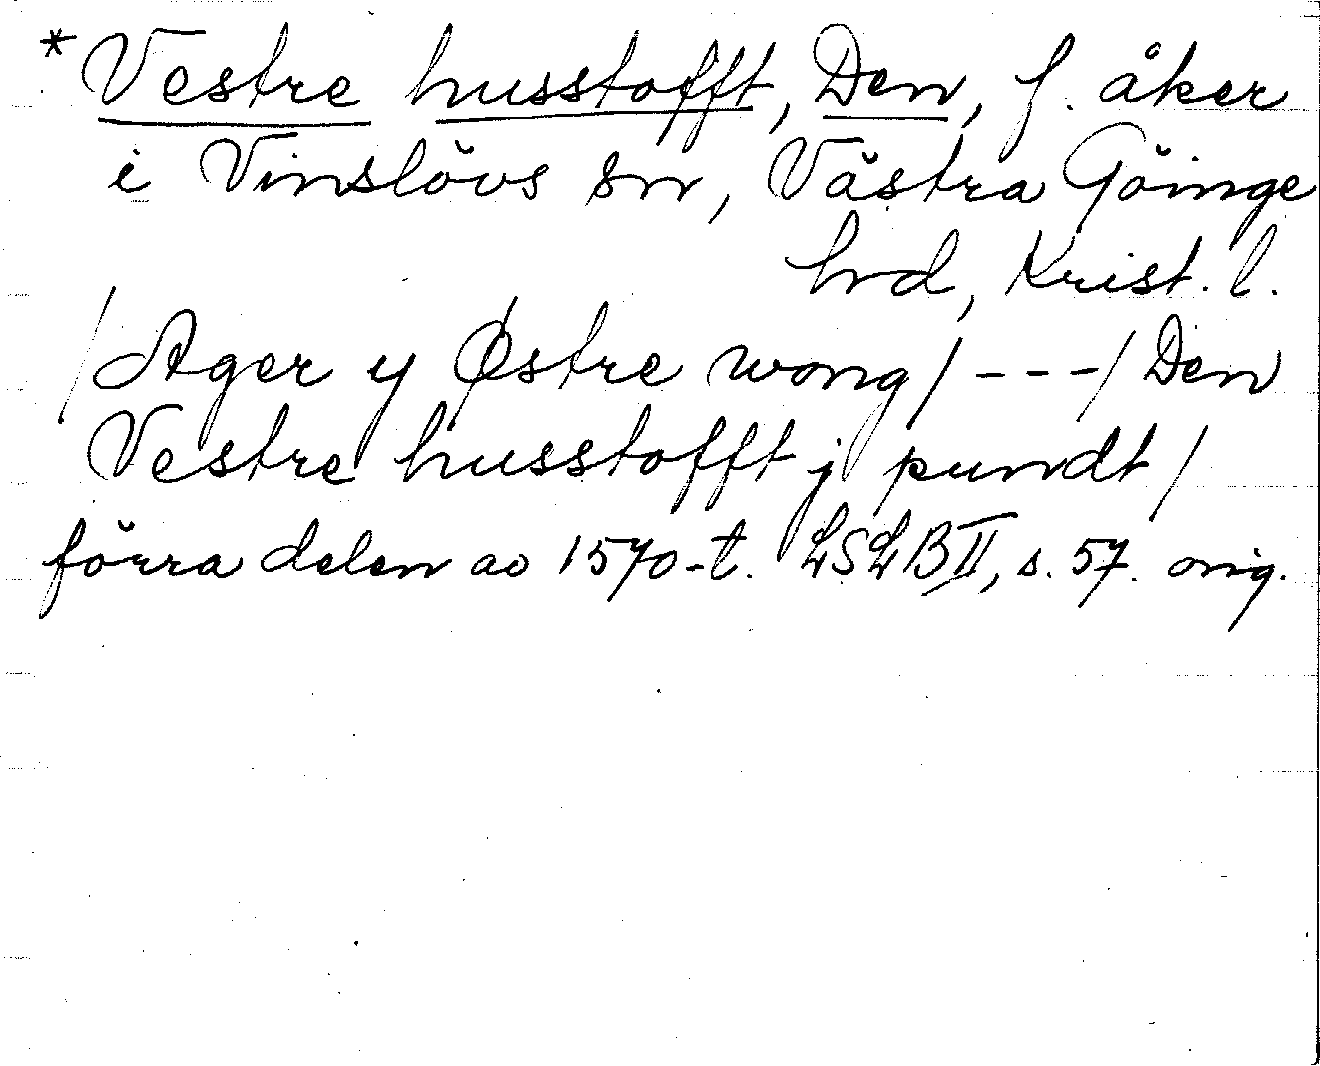 *Vestre husstofft, Den, f. åker
i Vinslövs sn, Västra Göinge
hrd, Krist. l.
/Ager y Østre wong/ - - - / Den
Vestre husstofft j pundt /
förra delen av 1570-t. LSLB II, s. 57. orig.